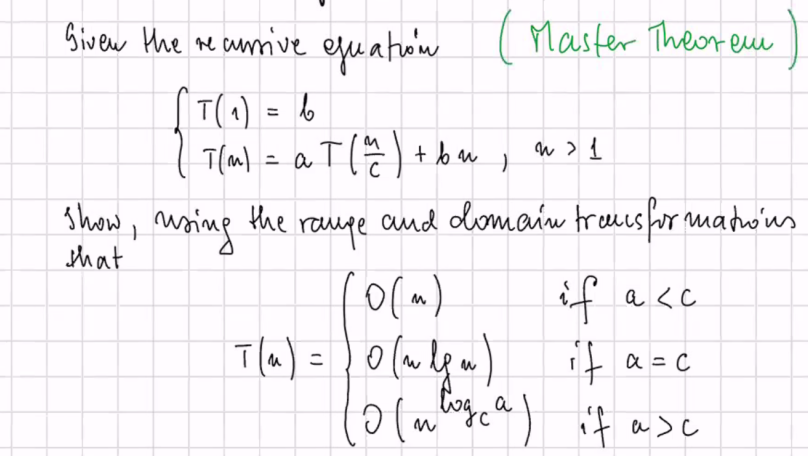 Given the recursive equation (Master Theorem)
T(1) = b
T(n) = a T(n/c) + bn , n > 1
show, using the range and domain transformations
that
O(n) if a < c
T(n) = O(n lg n) if a = c
O(n^{log_c a}) if a > c